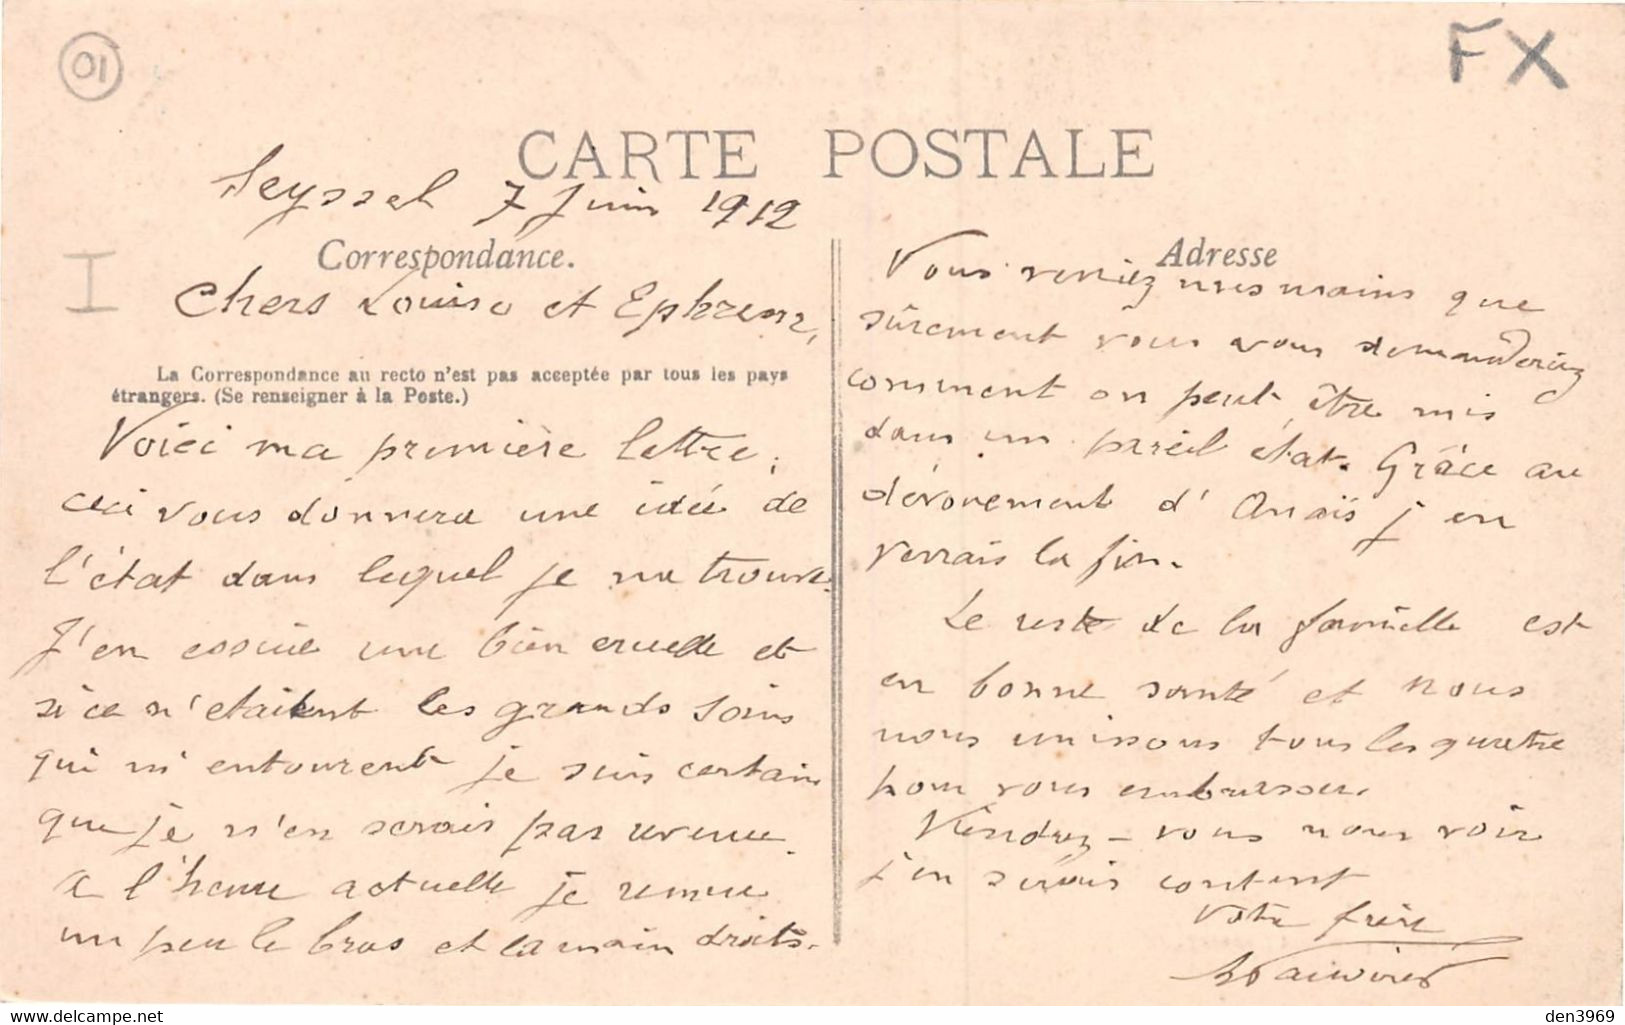 01
FX
CARTE POSTALE
Seyssel 7 Juin 1912
Correspondance.
Adresse
I
Chers Louise et Ephrem,
La Correspondance au recto n'est pas acceptée par tous les pays
étrangers. (Se renseigner à la Poste.)
Voici ma première lettre;
ceci vous donnera une idée de
l'état dans lequel je me trouve.
J'en essuie une bien cruelle et
si ce n'étaient les grands soins
qui m'entourent je suis certain
que je n'en serais pas revenu.
A l'heure actuelle je remue
un peu le bras et la main droits.
Vous verriez mes mains que
sûrement vous vous demanderiez
comment on peut être mis
dans un pareil état. Grâce au
dévouement d'Anaïs j'en
verrais la fin.
Le reste de la famille est
en bonne santé et nous
nous unissons tous les quatre
pour vous embrasser.
Viendrez-vous nous voir
j'en serais content
Votre frère
den3969